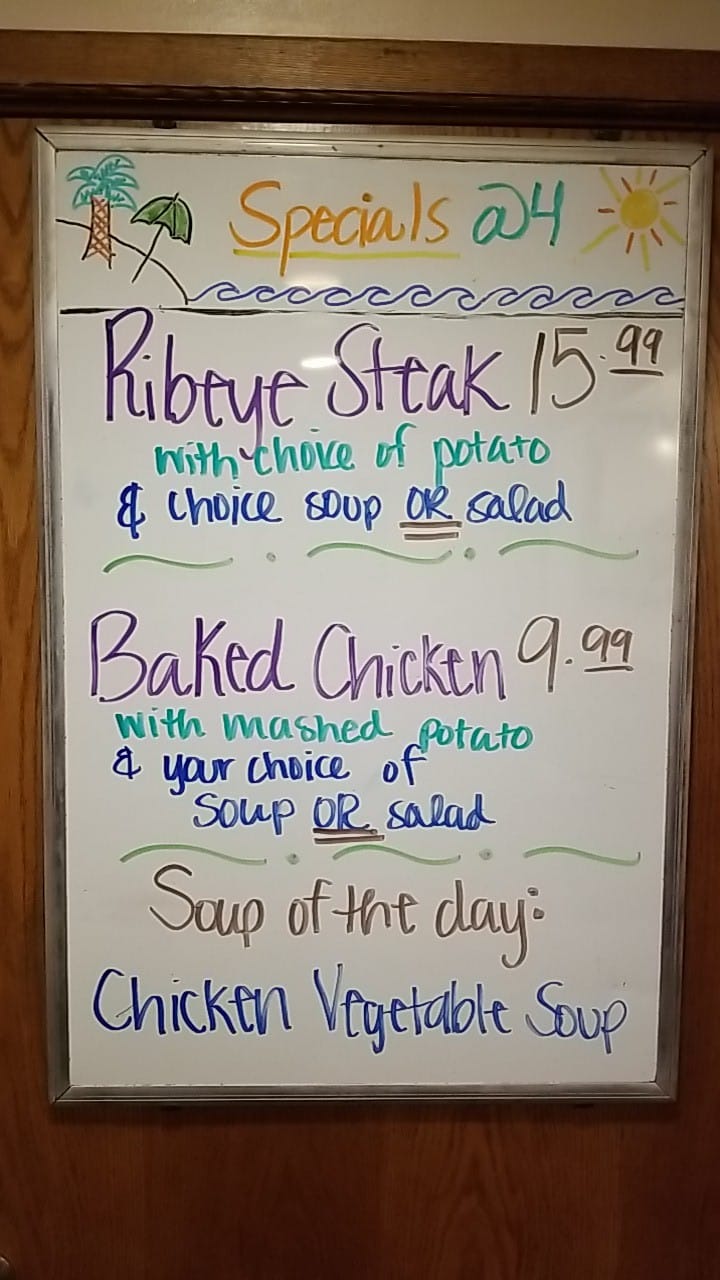 Specials @4
Ribeye Steak 15.99
with choice of potato
& choice soup OR salad
Baked Chicken 9.99
with mashed potato
& your choice of
Soup OR salad
Soup of the day:
Chicken Vegetable Soup